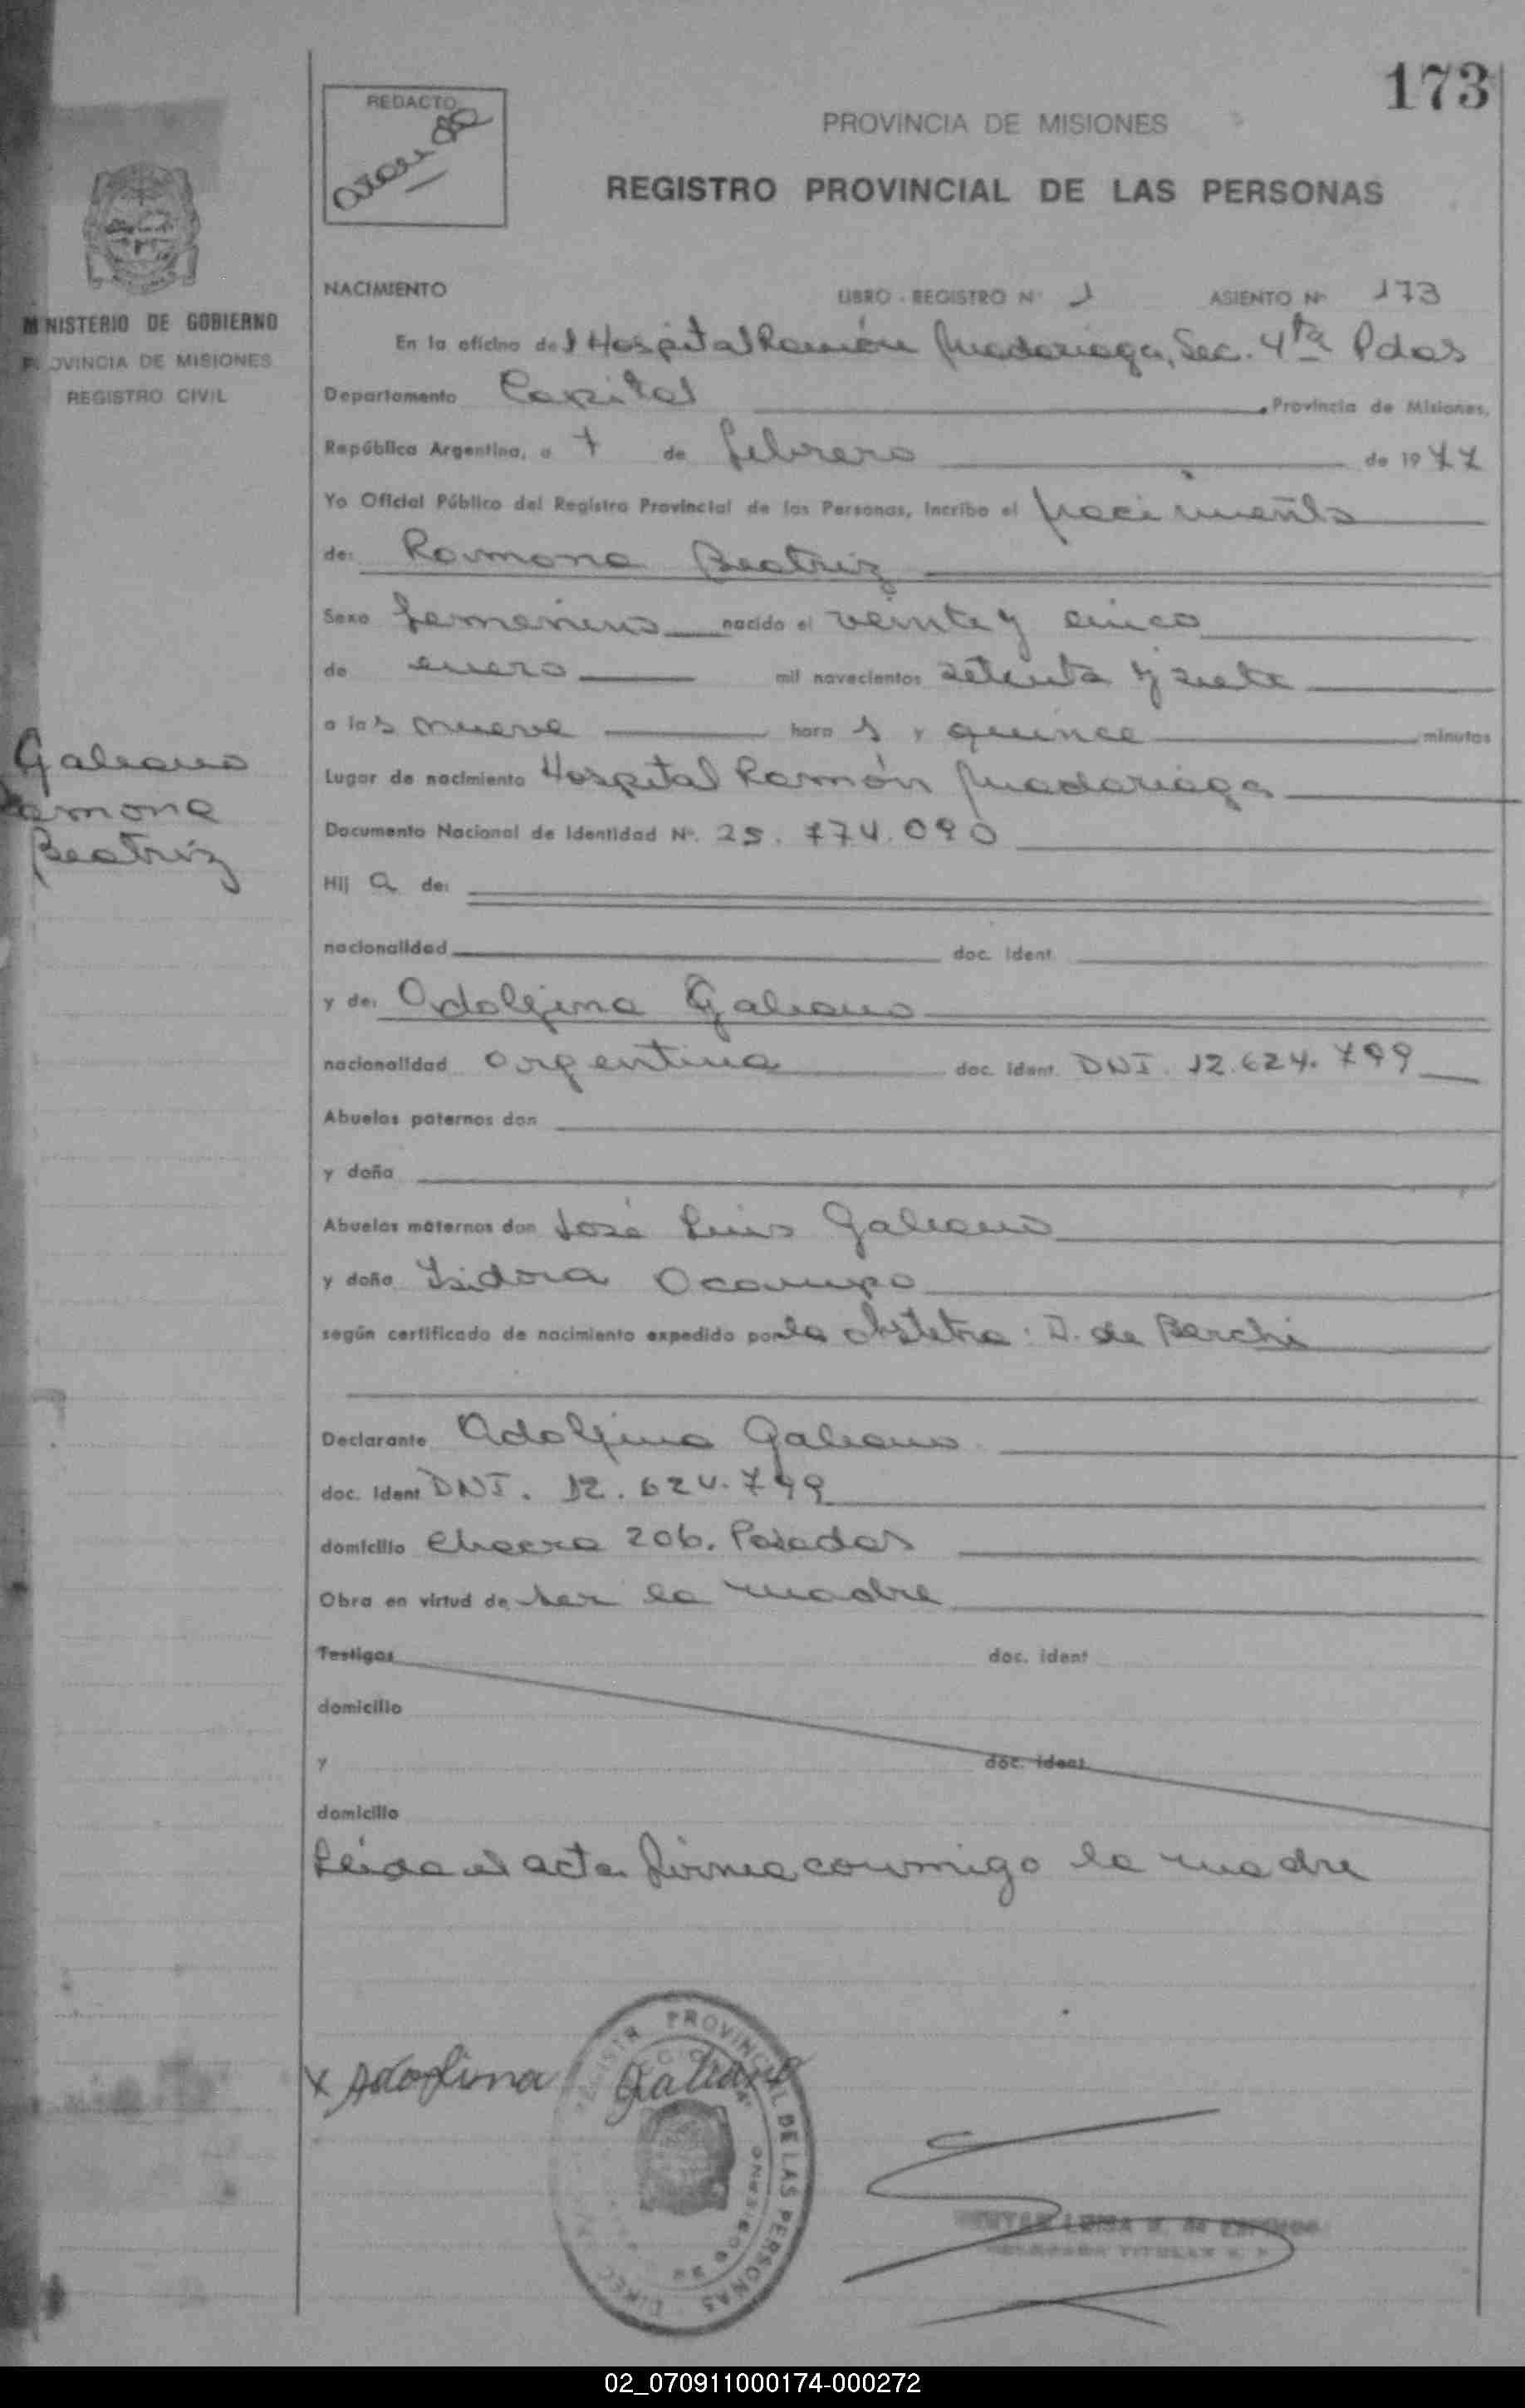 173
REDACTO
PROVINCIA DE MISIONES
REGISTRO PROVINCIAL DE LAS PERSONAS
MINISTERIO DE GOBIERNO
PROVINCIA DE MISIONES
REGISTRO CIVIL
NACIMIENTO LIBRO - REGISTRO Nº 1 ASIENTO Nº 173
En la oficina del Hospital Ramón Madariaga, Sec. 4ta Pdas
Departamento Capital Provincia de Misiones,
República Argentina, a 7 de febrero de 1977
Yo Oficial Público del Registro Provincial de las Personas, incribo el nacimiento
de: Ramona Beatriz
Sexo femenino nacido el veinte y cinco
de enero mil novecientos setenta y siete
a las nueve hora s y quince minutos
Galeano
Ramona
Beatriz
Lugar de nacimiento Hospital Ramón Madariaga
Documento Nacional de Identidad Nº. 25.774.090
Hij a de:
nacionalidad doc. ident.
y de: Adolfina Galeano
nacionalidad argentina doc. ident. DNI. 12.624.799
Abuelos paternos don
y doña
Abuelos maternos don José Luis Galeano
y doña Isidora Ocampo
según certificado de nacimiento expedido por la obstetra: D. de Berchi
Declarante Adolfina Galeano
doc. ident DNI. 12.624.799
domicilio Chacra 206. Posadas
Obra en virtud de ser la madre
Testigos doc. ident
domicilio
y doc. ident
domicilio
Leida el acta firma conmigo la madre
x Adolfina Galeano
PROVINCIAL DE LAS PERSONAS
02_070911000174-000272